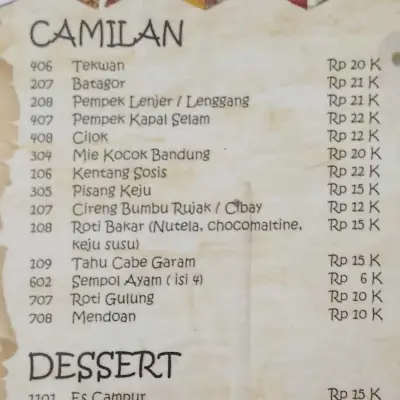 CAMILAN
406 Tekwan Rp 20 K
207 Batagor Rp 21 K
208 Pempek Lenjer / Lenggang Rp 21 K
407 Pempek Kapal Selam Rp 22 K
408 Cilok Rp 12 K
304 Mie Kocok Bandung Rp 20 K
106 Kentang Sosis Rp 22 K
305 Pisang Keju Rp 15 K
107 Cireng Bumbu Rujak / Cibay Rp 12 K
108 Roti Bakar (Nutela, chocomaltine, Rp 15 K
keju susu)
109 Tahu Cabe Garam Rp 15 K
602 Sempol Ayam ( isi 4) Rp 6 K
707 Roti Gulung Rp 10 K
708 Mendoan Rp 10 K
DESSERT
1101 Es Campur Rp 15 K